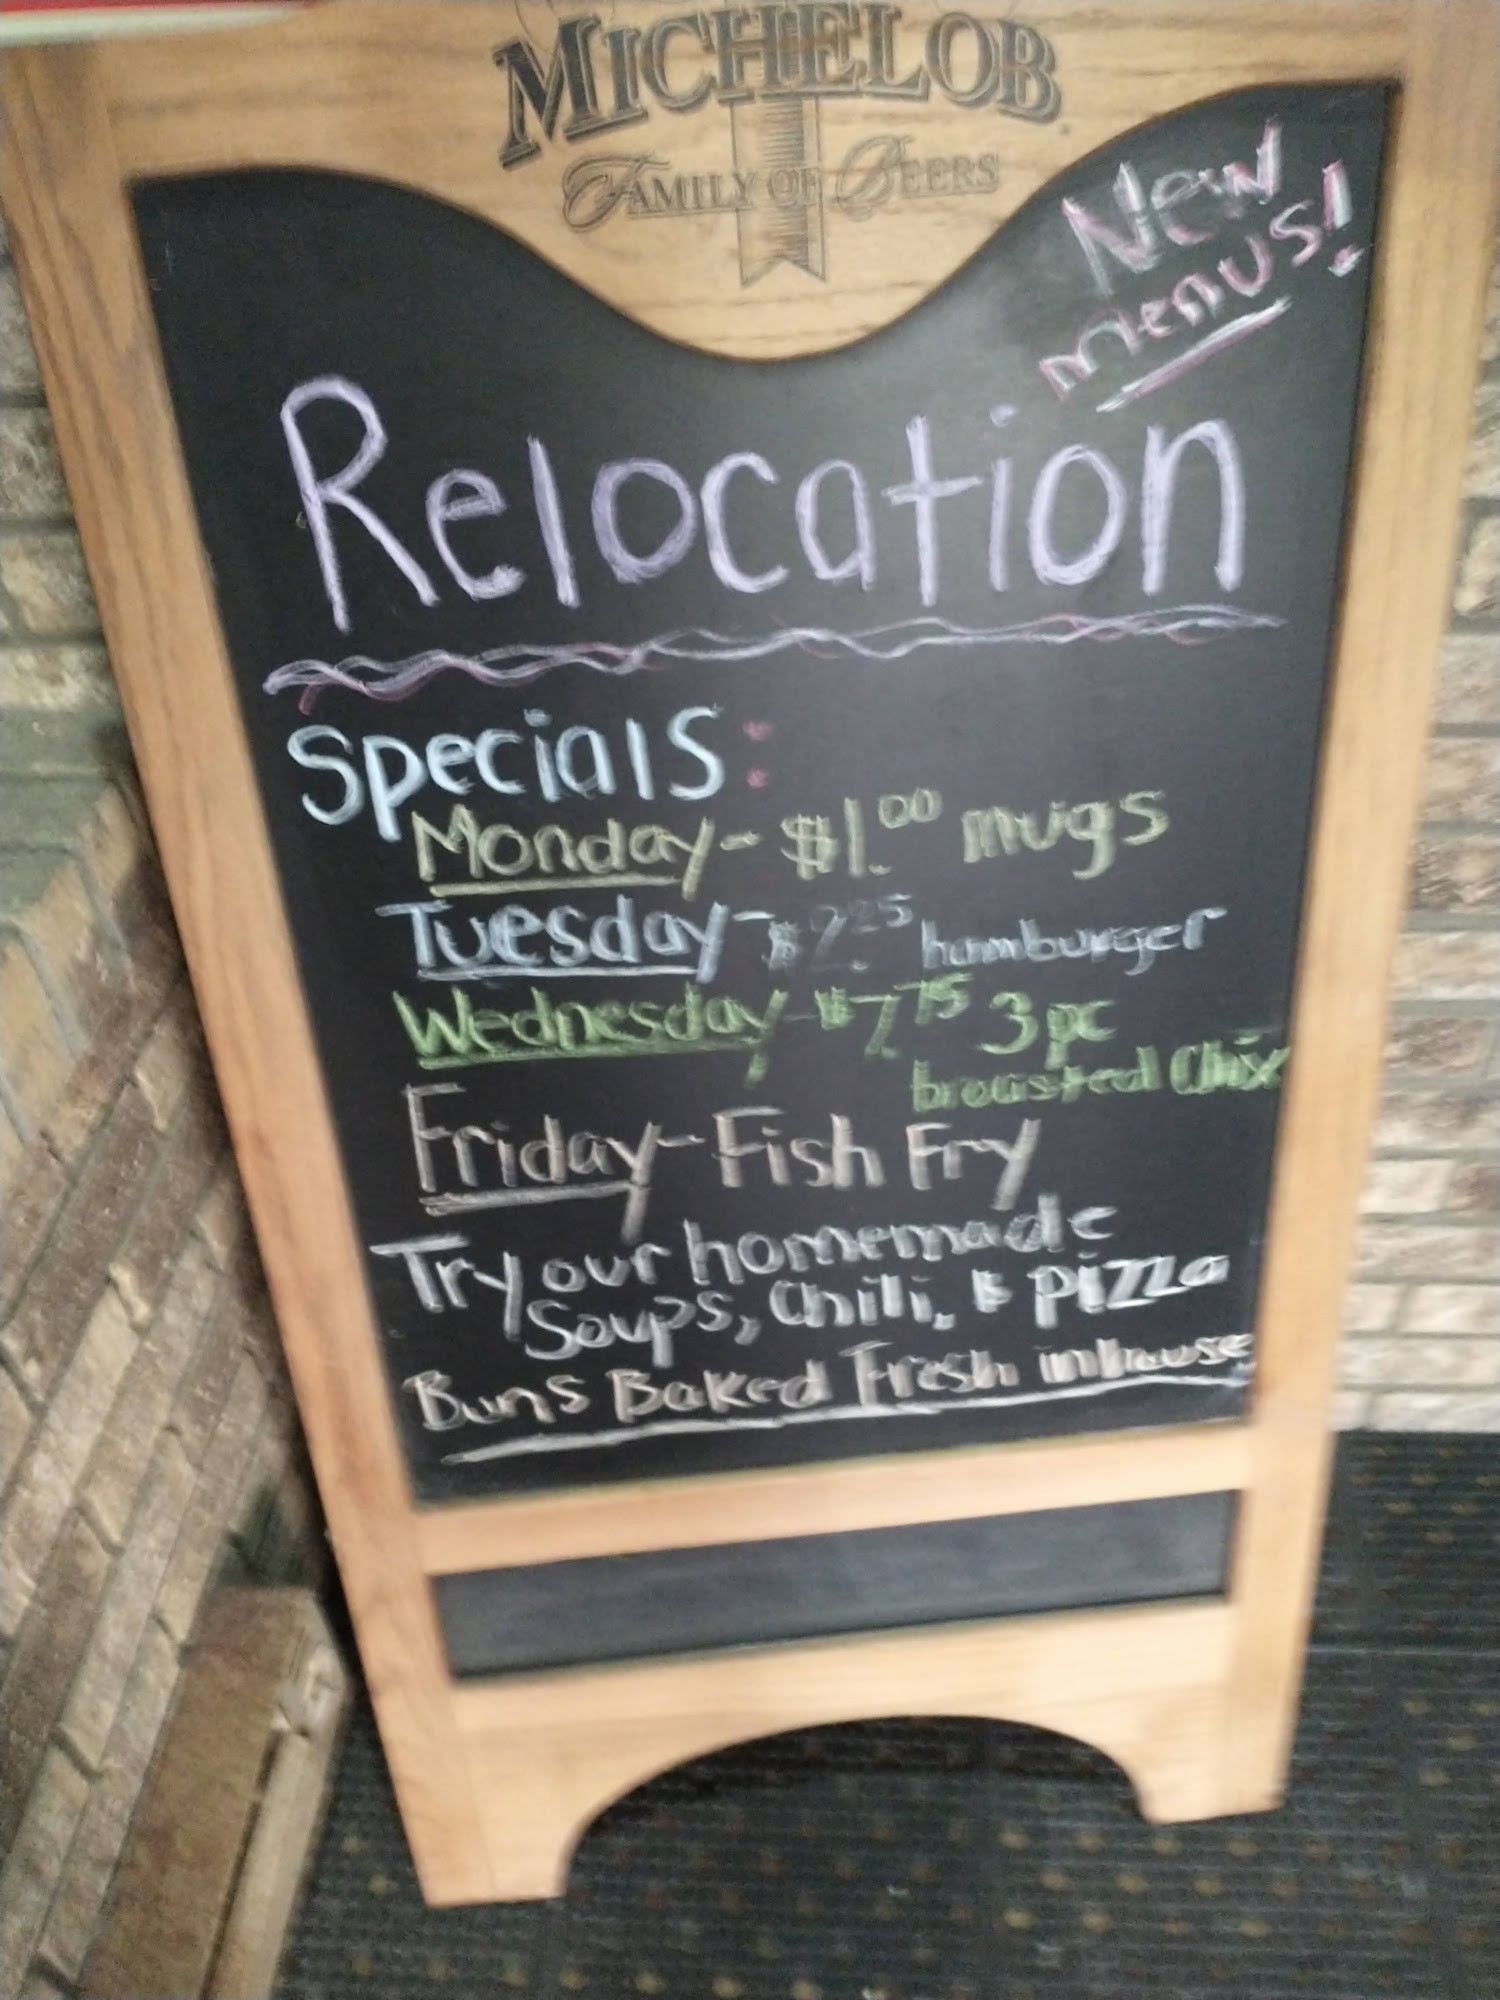 MICHELOB
FAMILY OF BEERS
New
menus!
Relocation
Specials:
Monday- $1.00 mugs
Tuesday- $2.25 hamburger
Wednesday- $7.75 3pc
broasted Chix
Friday- Fish Fry
Try our homemade
Soups, Chili, & pizza
Buns Baked Fresh inhouse